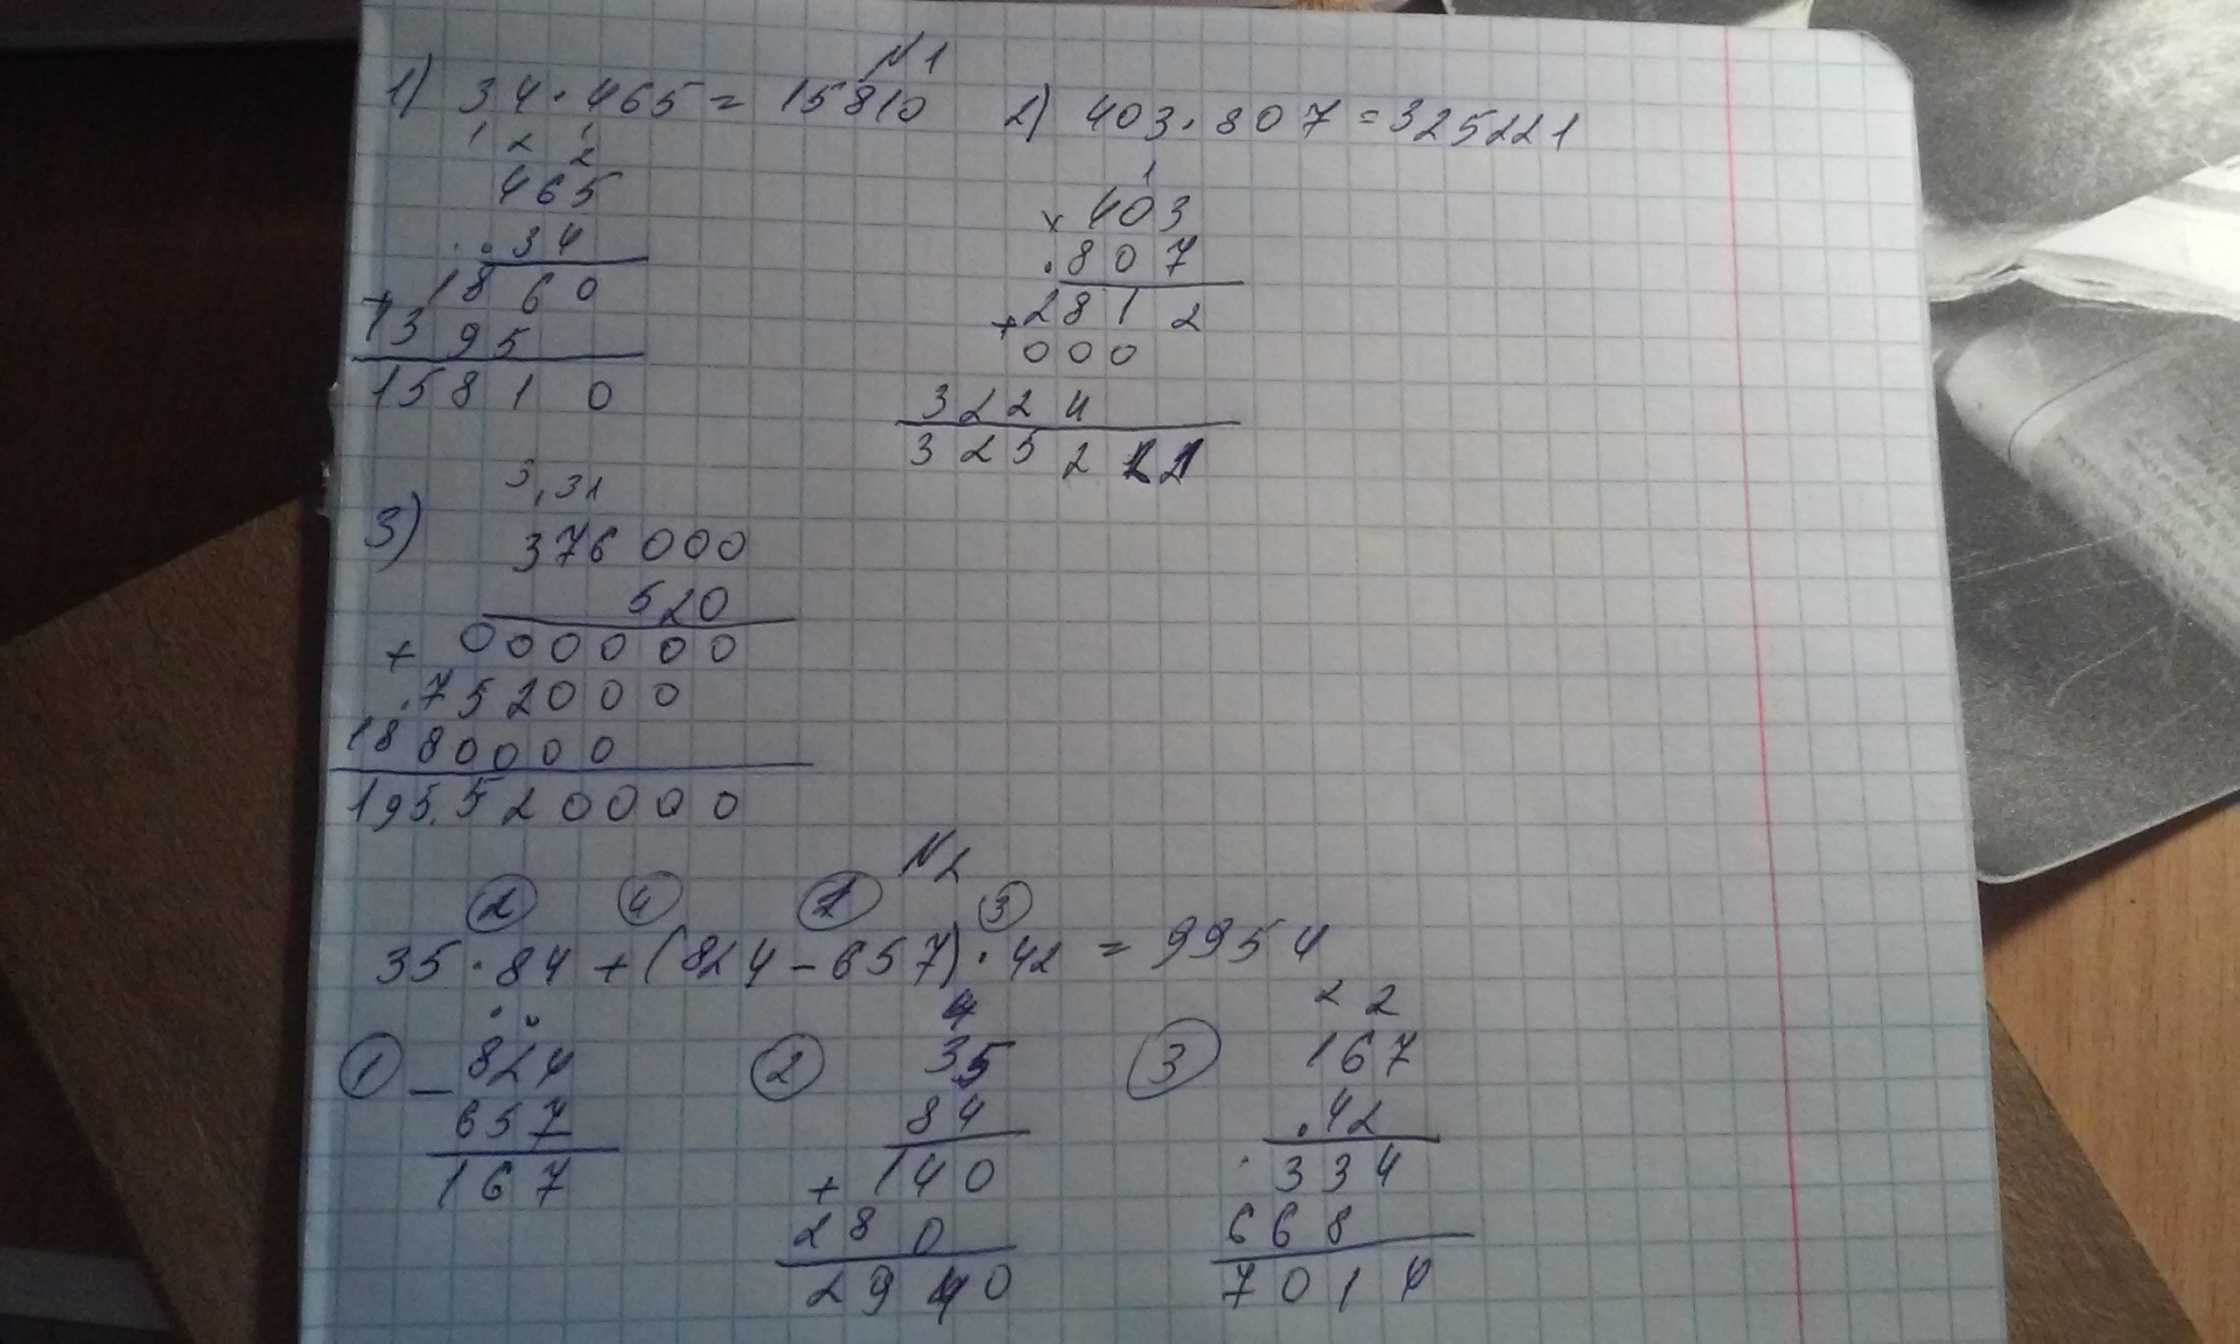 N1
1) 34·465=15810 2) 403·807=325221
1 2 1 2
465
34
1860
+
1395
15810
1
× 403
807
+ 2812
000
3224
325221
3, 31
3) 376000
520
+ 000000
752000
1880000
195520000
N2
2 4 1 3
35·84+(824-657)·42=9954
1 _ 824
657
167
4
2 35
84
+ 140
280
2940
2 2
3 167
42
334
668
7014